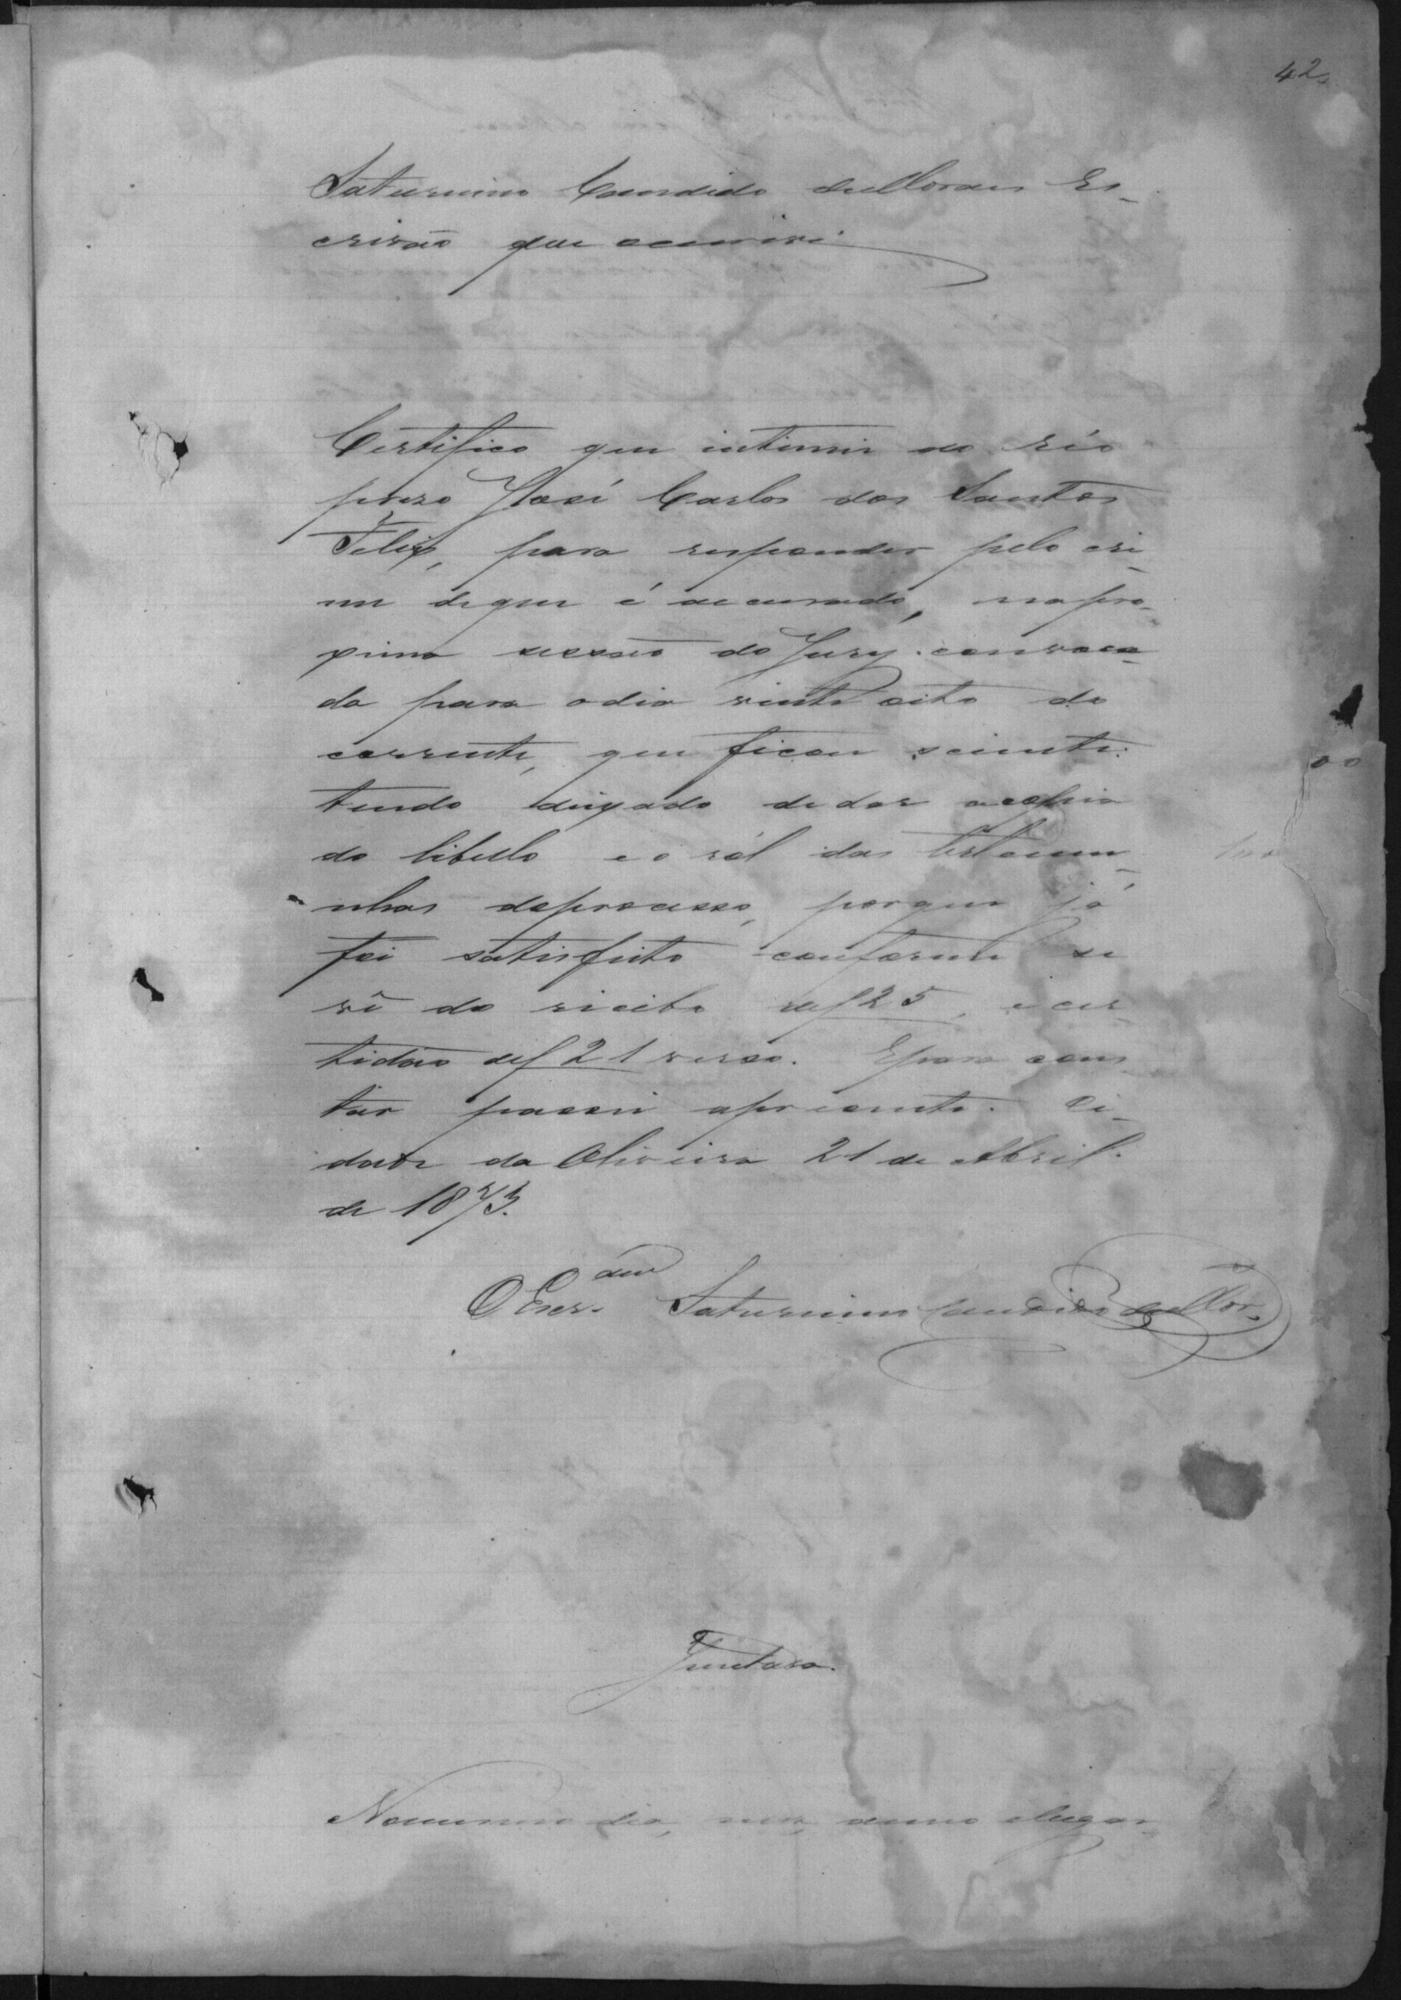 42
Saturnino Candido de Moraes Es-
crivão que escrevi
Certifico que intimei ao réo
prezo José Carlos dos Santos
Felix, para responder pelo cri-
me de que é accusado, na pro-
xima sessão do Jury convoca-
da para o dia vinte oito do
corrente, que ficou sciente:
tendo deixado de dar a copia
do libello e o ról das testemu-
nhas do processo, porque já
foi satisfeito conforme se
vê do recibo de f 25, e cer-
tidão de f 21 verso. E para cons
tar passei a presente. Ci-
dade da Oliveira 21 de Abril
de 1873.
O Escr.am Saturnino Candido de Mor.
Juntada.
No mesmo dia, mez, anno e lugar